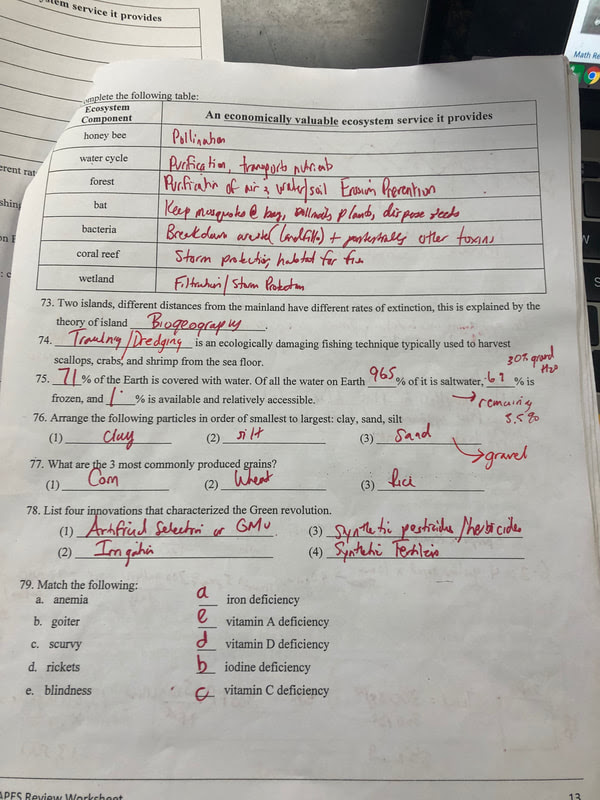 stem service it provides
Math Re
omplete the following table:
Ecosystem Component
An economically valuable ecosystem service it provides
honey bee Pollination
water cycle Purification, transports nutrients
forest Purification of air & water/soil Erosion Prevention
bat Keep mosquitos @ bay, pollinate plants, disperse seeds
bacteria Breakdown waste (landfills) + potentially other toxins
coral reef Storm protection, habitat for fish
wetland Filtration/Storm Protection
73. Two islands, different distances from the mainland have different rates of extinction, this is explained by the
theory of island Biogeography.
74. Trawling/Dredging is an ecologically damaging fishing technique typically used to harvest
scallops, crabs, and shrimp from the sea floor.
30% ground H2O
75. 71 % of the Earth is covered with water. Of all the water on Earth 965 % of it is saltwater, 69 % is
frozen, and 1 % is available and relatively accessible.
→ remaining 3.5%
76. Arrange the following particles in order of smallest to largest: clay, sand, silt
(1) clay (2) silt (3) Sand
→ gravel
77. What are the 3 most commonly produced grains?
(1) Corn (2) Wheat (3) Rice
78. List four innovations that characterized the Green revolution.
(1) Artificial Selection or GMO (3) Synthetic pesticides/herbicides
(2) Irrigation (4) Synthetic Fertilizer
79. Match the following:
a. anemia a iron deficiency
b. goiter e vitamin A deficiency
c. scurvy d vitamin D deficiency
d. rickets b iodine deficiency
e. blindness c vitamin C deficiency
APES Review Worksheet 13